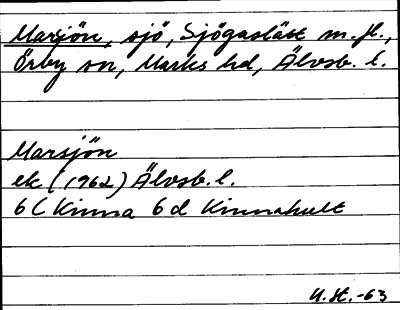 Marsjön, sjö, Sjögaslätt m.fl.,
Örby sn, Marks hd, Älvsb. l.
Marsjön
ek (1962) Älvsb. l.
6 C Kinna 6 d Kinnahult
U.St.-63